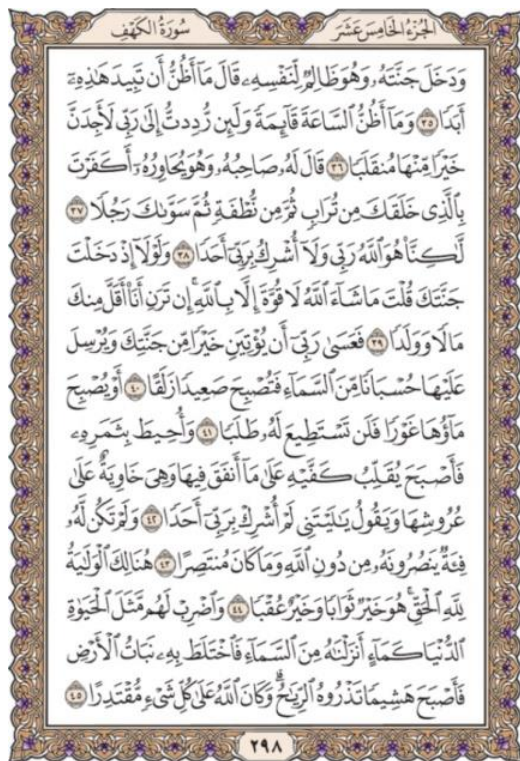 الجُزْءُ الخَامِسَ عَشَرَ
سُورَةُ الكَهْفِ
وَدَخَلَ جَنَّتَهُۥ وَهُوَ ظَالِمٌ لِّنَفْسِهِۦ قَالَ مَآ أَظُنُّ أَن تَبِيدَ هَٰذِهِۦٓ
أَبَدًا ٣٥ وَمَآ أَظُنُّ ٱلسَّاعَةَ قَآئِمَةً وَلَئِن رُّدِدتُّ إِلَىٰ رَبِّى لَأَجِدَنَّ
خَيْرًا مِّنْهَا مُنقَلَبًا ٣٦ قَالَ لَهُۥ صَاحِبُهُۥ وَهُوَ يُحَاوِرُهُۥٓ أَكَفَرْتَ
بِٱلَّذِى خَلَقَكَ مِن تُرَابٍ ثُمَّ مِن نُّطْفَةٍ ثُمَّ سَوَّىٰكَ رَجُلًا ٣٧
لَّٰكِنَّا۠ هُوَ ٱللَّهُ رَبِّى وَلَآ أُشْرِكُ بِرَبِّىٓ أَحَدًا ٣٨ وَلَوْلَآ إِذْ دَخَلْتَ
جَنَّتَكَ قُلْتَ مَا شَآءَ ٱللَّهُ لَا قُوَّةَ إِلَّا بِٱللَّهِ ۚ إِن تَرَنِ أَنَا۠ أَقَلَّ مِنكَ
مَالًا وَوَلَدًا ٣٩ فَعَسَىٰ رَبِّىٓ أَن يُؤْتِيَنِ خَيْرًا مِّن جَنَّتِكَ وَيُرْسِلَ
عَلَيْهَا حُسْبَانًا مِّنَ ٱلسَّمَآءِ فَتُصْبِحَ صَعِيدًا زَلَقًا ٤٠ أَوْ يُصْبِحَ
مَآؤُهَا غَوْرًا فَلَن تَسْتَطِيعَ لَهُۥ طَلَبًا ٤١ وَأُحِيطَ بِثَمَرِهِۦ
فَأَصْبَحَ يُقَلِّبُ كَفَّيْهِ عَلَىٰ مَآ أَنفَقَ فِيهَا وَهِىَ خَاوِيَةٌ عَلَىٰ
عُرُوشِهَا وَيَقُولُ يَٰلَيْتَنِى لَمْ أُشْرِكْ بِرَبِّىٓ أَحَدًا ٤٢ وَلَمْ تَكُن لَّهُۥ
فِئَةٌ يَنصُرُونَهُۥ مِن دُونِ ٱللَّهِ وَمَا كَانَ مُنتَصِرًا ٤٣ هُنَالِكَ ٱلْوَلَٰيَةُ
لِلَّهِ ٱلْحَقِّ ۚ هُوَ خَيْرٌ ثَوَابًا وَخَيْرٌ عُقْبًا ٤٤ وَٱضْرِبْ لَهُم مَّثَلَ ٱلْحَيَوٰةِ
ٱلدُّنْيَا كَمَآءٍ أَنزَلْنَٰهُ مِنَ ٱلسَّمَآءِ فَٱخْتَلَطَ بِهِۦ نَبَاتُ ٱلْأَرْضِ
فَأَصْبَحَ هَشِيمًا تَذْرُوهُ ٱلرِّيَٰحُ ۗ وَكَانَ ٱللَّهُ عَلَىٰ كُلِّ شَىْءٍ مُّقْتَدِرًا ٤٥
٢٩٨